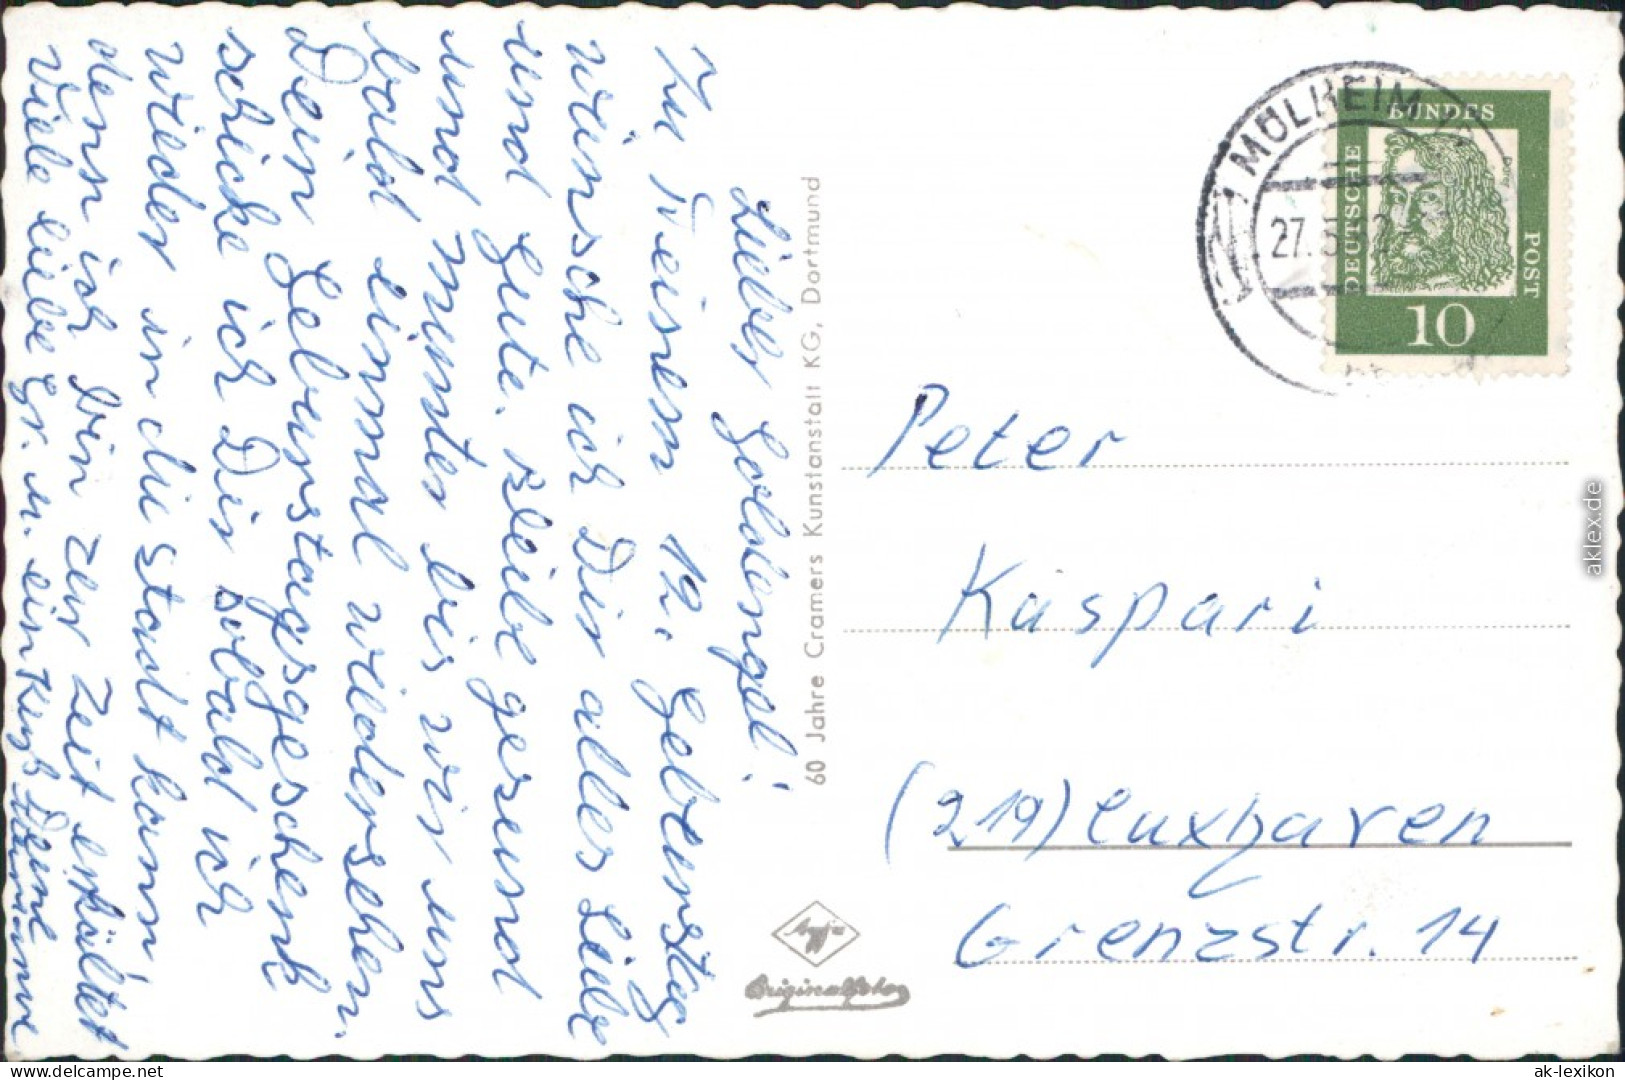 Lieber Goldengel!
Zu Deinem 12. Geburtstag
wünsche ich Dir alles Liebe
und Gute. Bleibe gesund
und munter bis wir uns
bald einmal wiedersehen.
Dein Geburtstagsgeschenk
schicke ich Dir sobald ich
wieder in die Stadt kann,
denn ich bin zur Zeit erkältet
Viele liebe Gr. u. ein Kuß Deine
60 Jahre Cramers Kunstanstalt KG, Dortmund
MÜLHEIM
27.5.62
DEUTSCHE
BUNDES
POST
10
Peter
Kaspari
(219) Cuxhaven
Grenzstr. 14
Agfa
Originalfoto
aklex.de
www.delcampe.net
ak-lexikon